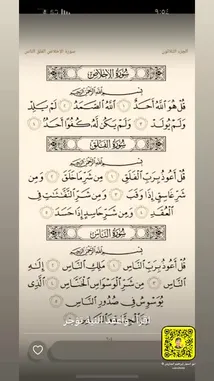 ٩:٥٤
الجزء الثلاثون
سورة الإخلاص الفلق الناس
سُورَةُ الإِخْلَاصِ
بِسْمِ اللَّهِ الرَّحْمَٰنِ الرَّحِيمِ
قُلْ هُوَ اللَّهُ أَحَدٌ ١ اللَّهُ الصَّمَدُ ٢ لَمْ يَلِدْ
وَلَمْ يُولَدْ ٣ وَلَمْ يَكُن لَّهُ كُفُوًا أَحَدٌ ٤
سُورَةُ الفَلَقِ
بِسْمِ اللَّهِ الرَّحْمَٰنِ الرَّحِيمِ
قُلْ أَعُوذُ بِرَبِّ الْفَلَقِ ١ مِن شَرِّ مَا خَلَقَ ٢ وَمِن
شَرِّ غَاسِقٍ إِذَا وَقَبَ ٣ وَمِن شَرِّ النَّفَّاثَاتِ فِي
الْعُقَدِ ٤ وَمِن شَرِّ حَاسِدٍ إِذَا حَسَدَ ٥
سُورَةُ النَّاسِ
بِسْمِ اللَّهِ الرَّحْمَٰنِ الرَّحِيمِ
قُلْ أَعُوذُ بِرَبِّ النَّاسِ ١ مَلِكِ النَّاسِ ٢ إِلَٰهِ
النَّاسِ ٣ مِن شَرِّ الْوَسْوَاسِ الْخَنَّاسِ ٤ الَّذِي
يُوَسْوِسُ فِي صُدُورِ النَّاسِ ٥